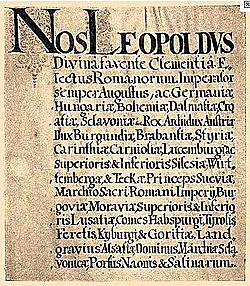 Nos Leopoldvs
Divina favente Clementia E,
lectus Romanorum Imperator
semper Augustus, ac Germaniæ
Hungariæ, Bohemiæ, Dalmatiæ, Cro,
atiæ, Sclavoniæ Rex, Archidux Austriæ
Dux Burgundiæ, Brabantiæ, Styriæ
Carinthiæ, Carniolæ, Luxemburgiæ, ac
superioris & Inferioris Silesiæ, Wür,
tembergæ, & Teckæ, Princeps Sueviæ,
Marchio Sacri Romani Imperij, Bur,
goviæ, Moraviæ, Superioris & Inferio,
ris Lusatiæ, Comes Habspurgi, Tyrolis
Feretis, Kyburgi & Goritiæ, Land,
gravius Alsatiæ, Dominus Marchiæ Scla,
vonicæ, Portus Naonis & Salinarum.